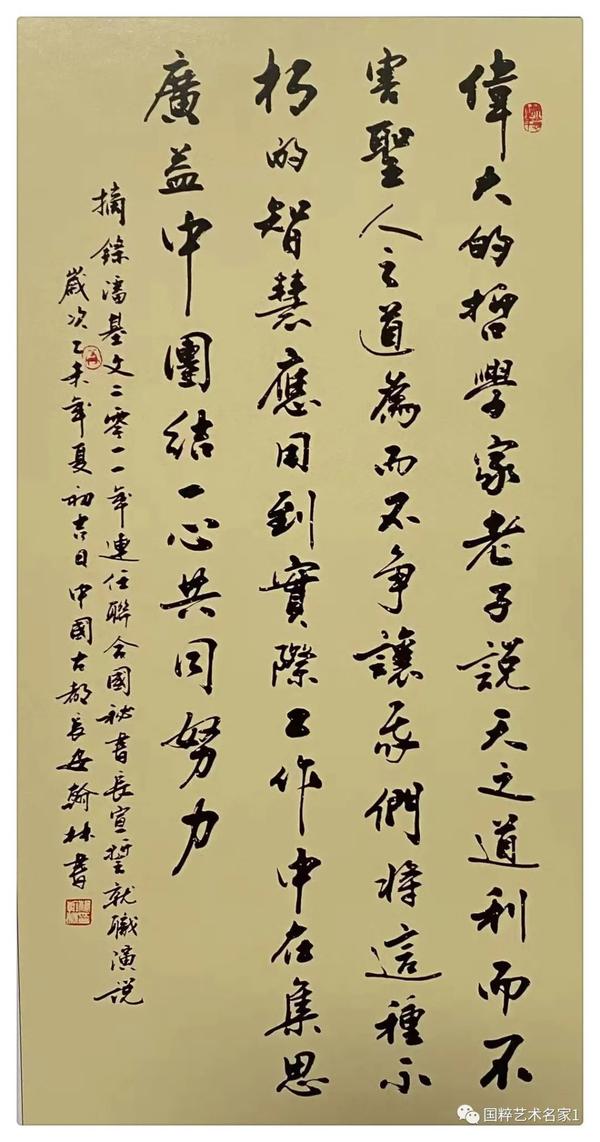 偉大的哲學家老子説天之道利而不
害聖人之道為而不争讓我們将這種不
朽的智慧應用到實際工作中在集思
廣益中團结一心共同努力
摘錄潘基文二零一一年連任聯合國祕書長宣誓就職演説
嵗次乙未年夏初吉日中國古都長安翰林書
国粹艺术名家1